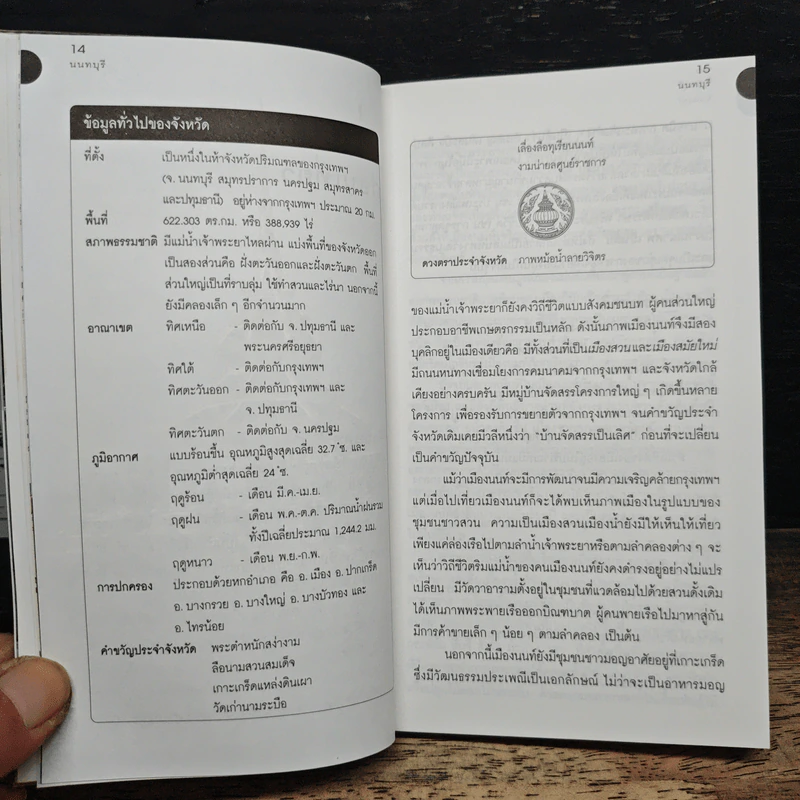 14
นนทบุรี
ข้อมูลทั่วไปของจังหวัด
ที่ตั้ง เป็นหนึ่งในห้าจังหวัดปริมณฑลของกรุงเทพฯ
(จ. นนทบุรี สมุทรปราการ นครปฐม สมุทรสาคร
และปทุมธานี) อยู่ห่างจากกรุงเทพฯ ประมาณ 20 กม.
พื้นที่ 622.303 ตร.กม. หรือ 388,939 ไร่
สภาพธรรมชาติ มีแม่น้ำเจ้าพระยาไหลผ่าน แบ่งพื้นที่ของจังหวัดออก
เป็นสองส่วนคือ ฝั่งตะวันออกและฝั่งตะวันตก พื้นที่
ส่วนใหญ่เป็นที่ราบลุ่ม ใช้ทำสวนและไร่นา นอกจากนี้
ยังมีคลองเล็ก ๆ อีกจำนวนมาก
อาณาเขต ทิศเหนือ - ติดต่อกับ จ. ปทุมธานี และ
พระนครศรีอยุธยา
ทิศใต้ - ติดต่อกับกรุงเทพฯ
ทิศตะวันออก - ติดต่อกับกรุงเทพฯ และ
จ. ปทุมธานี
ทิศตะวันตก - ติดต่อกับ จ. นครปฐม
ภูมิอากาศ แบบร้อนชื้น อุณหภูมิสูงสุดเฉลี่ย 32.7 ํซ. และ
อุณหภูมิต่ำสุดเฉลี่ย 24 ํซ.
ฤดูร้อน - เดือน มี.ค.-เม.ย.
ฤดูฝน - เดือน พ.ค.-ต.ค. ปริมาณน้ำฝนรวม
ทั้งปีเฉลี่ยประมาณ 1,244.2 มม.
ฤดูหนาว - เดือน พ.ย.-ก.พ.
การปกครอง ประกอบด้วยหกอำเภอ คือ อ. เมือง อ. ปากเกร็ด
อ. บางกรวย อ. บางใหญ่ อ. บางบัวทอง และ
อ. ไทรน้อย
คำขวัญประจำจังหวัด พระตำหนักสง่างาม
ลือนามสวนสมเด็จ
เกาะเกร็ดแหล่งดินเผา
วัดเก่านามระบือ
15
นนทบุรี
เลื่องลือทุเรียนนนท์
งามน่ายลศูนย์ราชการ
ดวงตราประจำจังหวัด ภาพหม้อน้ำลายวิจิตร
ของแม่น้ำเจ้าพระยาก็ยังคงวิถีชีวิตแบบสังคมชนบท ผู้คนส่วนใหญ่
ประกอบอาชีพเกษตรกรรมเป็นหลัก ดังนั้นภาพเมืองนนท์จึงมีสอง
บุคลิกอยู่ในเมืองเดียวคือ มีทั้งส่วนที่เป็นเมืองสวนและเมืองสมัยใหม่
มีถนนหนทางเชื่อมโยงการคมนาคมจากกรุงเทพฯ และจังหวัดใกล้
เคียงอย่างครบครัน มีหมู่บ้านจัดสรรโครงการใหญ่ ๆ เกิดขึ้นหลาย
โครงการ เพื่อรองรับการขยายตัวจากกรุงเทพฯ จนคำขวัญประจำ
จังหวัดเดิมเคยมีวลีหนึ่งว่า “บ้านจัดสรรเป็นเลิศ” ก่อนที่จะเปลี่ยน
เป็นคำขวัญปัจจุบัน
แม้ว่าเมืองนนท์จะมีการพัฒนาจนมีความเจริญคล้ายกรุงเทพฯ
แต่เมื่อไปเที่ยวเมืองนนท์ก็จะได้พบเห็นภาพเมืองในรูปแบบของ
ชุมชนชาวสวน ความเป็นเมืองสวนเมืองน้ำยังมีให้เห็นให้เที่ยว
เพียงแค่ล่องเรือไปตามลำน้ำเจ้าพระยาหรือตามลำคลองต่าง ๆ จะ
เห็นว่าวิถีชีวิตริมแม่น้ำของคนเมืองนนท์ยังคงดำรงอยู่อย่างไม่แปร
เปลี่ยน มีวัดวาอารามตั้งอยู่ในชุมชนที่แวดล้อมไปด้วยสวนดั้งเดิม
ได้เห็นภาพพระพายเรือออกบิณฑบาต ผู้คนพายเรือไปมาหาสู่กัน
มีการค้าขายเล็ก ๆ น้อย ๆ ตามลำคลอง เป็นต้น
นอกจากนี้เมืองนนท์ยังมีชุมชนชาวมอญอาศัยอยู่ที่เกาะเกร็ด
ซึ่งมีวัฒนธรรมประเพณีเป็นเอกลักษณ์ ไม่ว่าจะเป็นอาหารมอญ